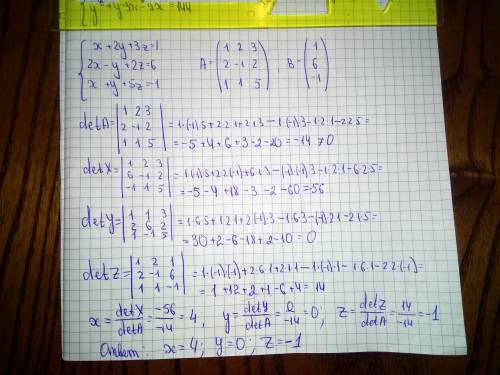 y² + y - 9x - 9x = 144
{ x+2y+3z=1
2x-y+2z=6
x+y+5z=-1
A = ( 1 2 3
2 -1 2
1 1 5 ) , B = ( 1
6
-1 )
detA = | 1 2 3
2 -1 2
1 1 5 | = 1·(-1)·5+2·2·1+2·1·3-1·(-1)·3-1·2·1-2·2·5=
= -5+4+6+3-2-20 = -14 ≠0
detX = | 1 2 3
6 -1 2
-1 1 5 | = 1·(-1)·5+2·2·(-1)+6·1·3-(-1)·(-1)·3-1·2·1-6·2·5=
= -5-4+18-3-2-60=-56
detY = | 1 1 3
2 6 2
1 -1 5 | = 1·6·5+1·2·1+2·(-1)·3-1·6·3-(-1)·2·1-2·1·5=
= 30+2-6-18+2-10=0
detZ = | 1 2 1
2 -1 6
1 1 -1 | = 1·(-1)·(-1)+2·6·1+2·1·1-1·(-1)·1-1·6·1-2·2·(-1)=
= 1+12+2+1-6+4=14
x = detX/detA = -56/-14 = 4, y = detY/detA = 0/-14 = 0; z = detZ/detA = 14/-14 = -1
Ответ: x=4; y=0; z=-1